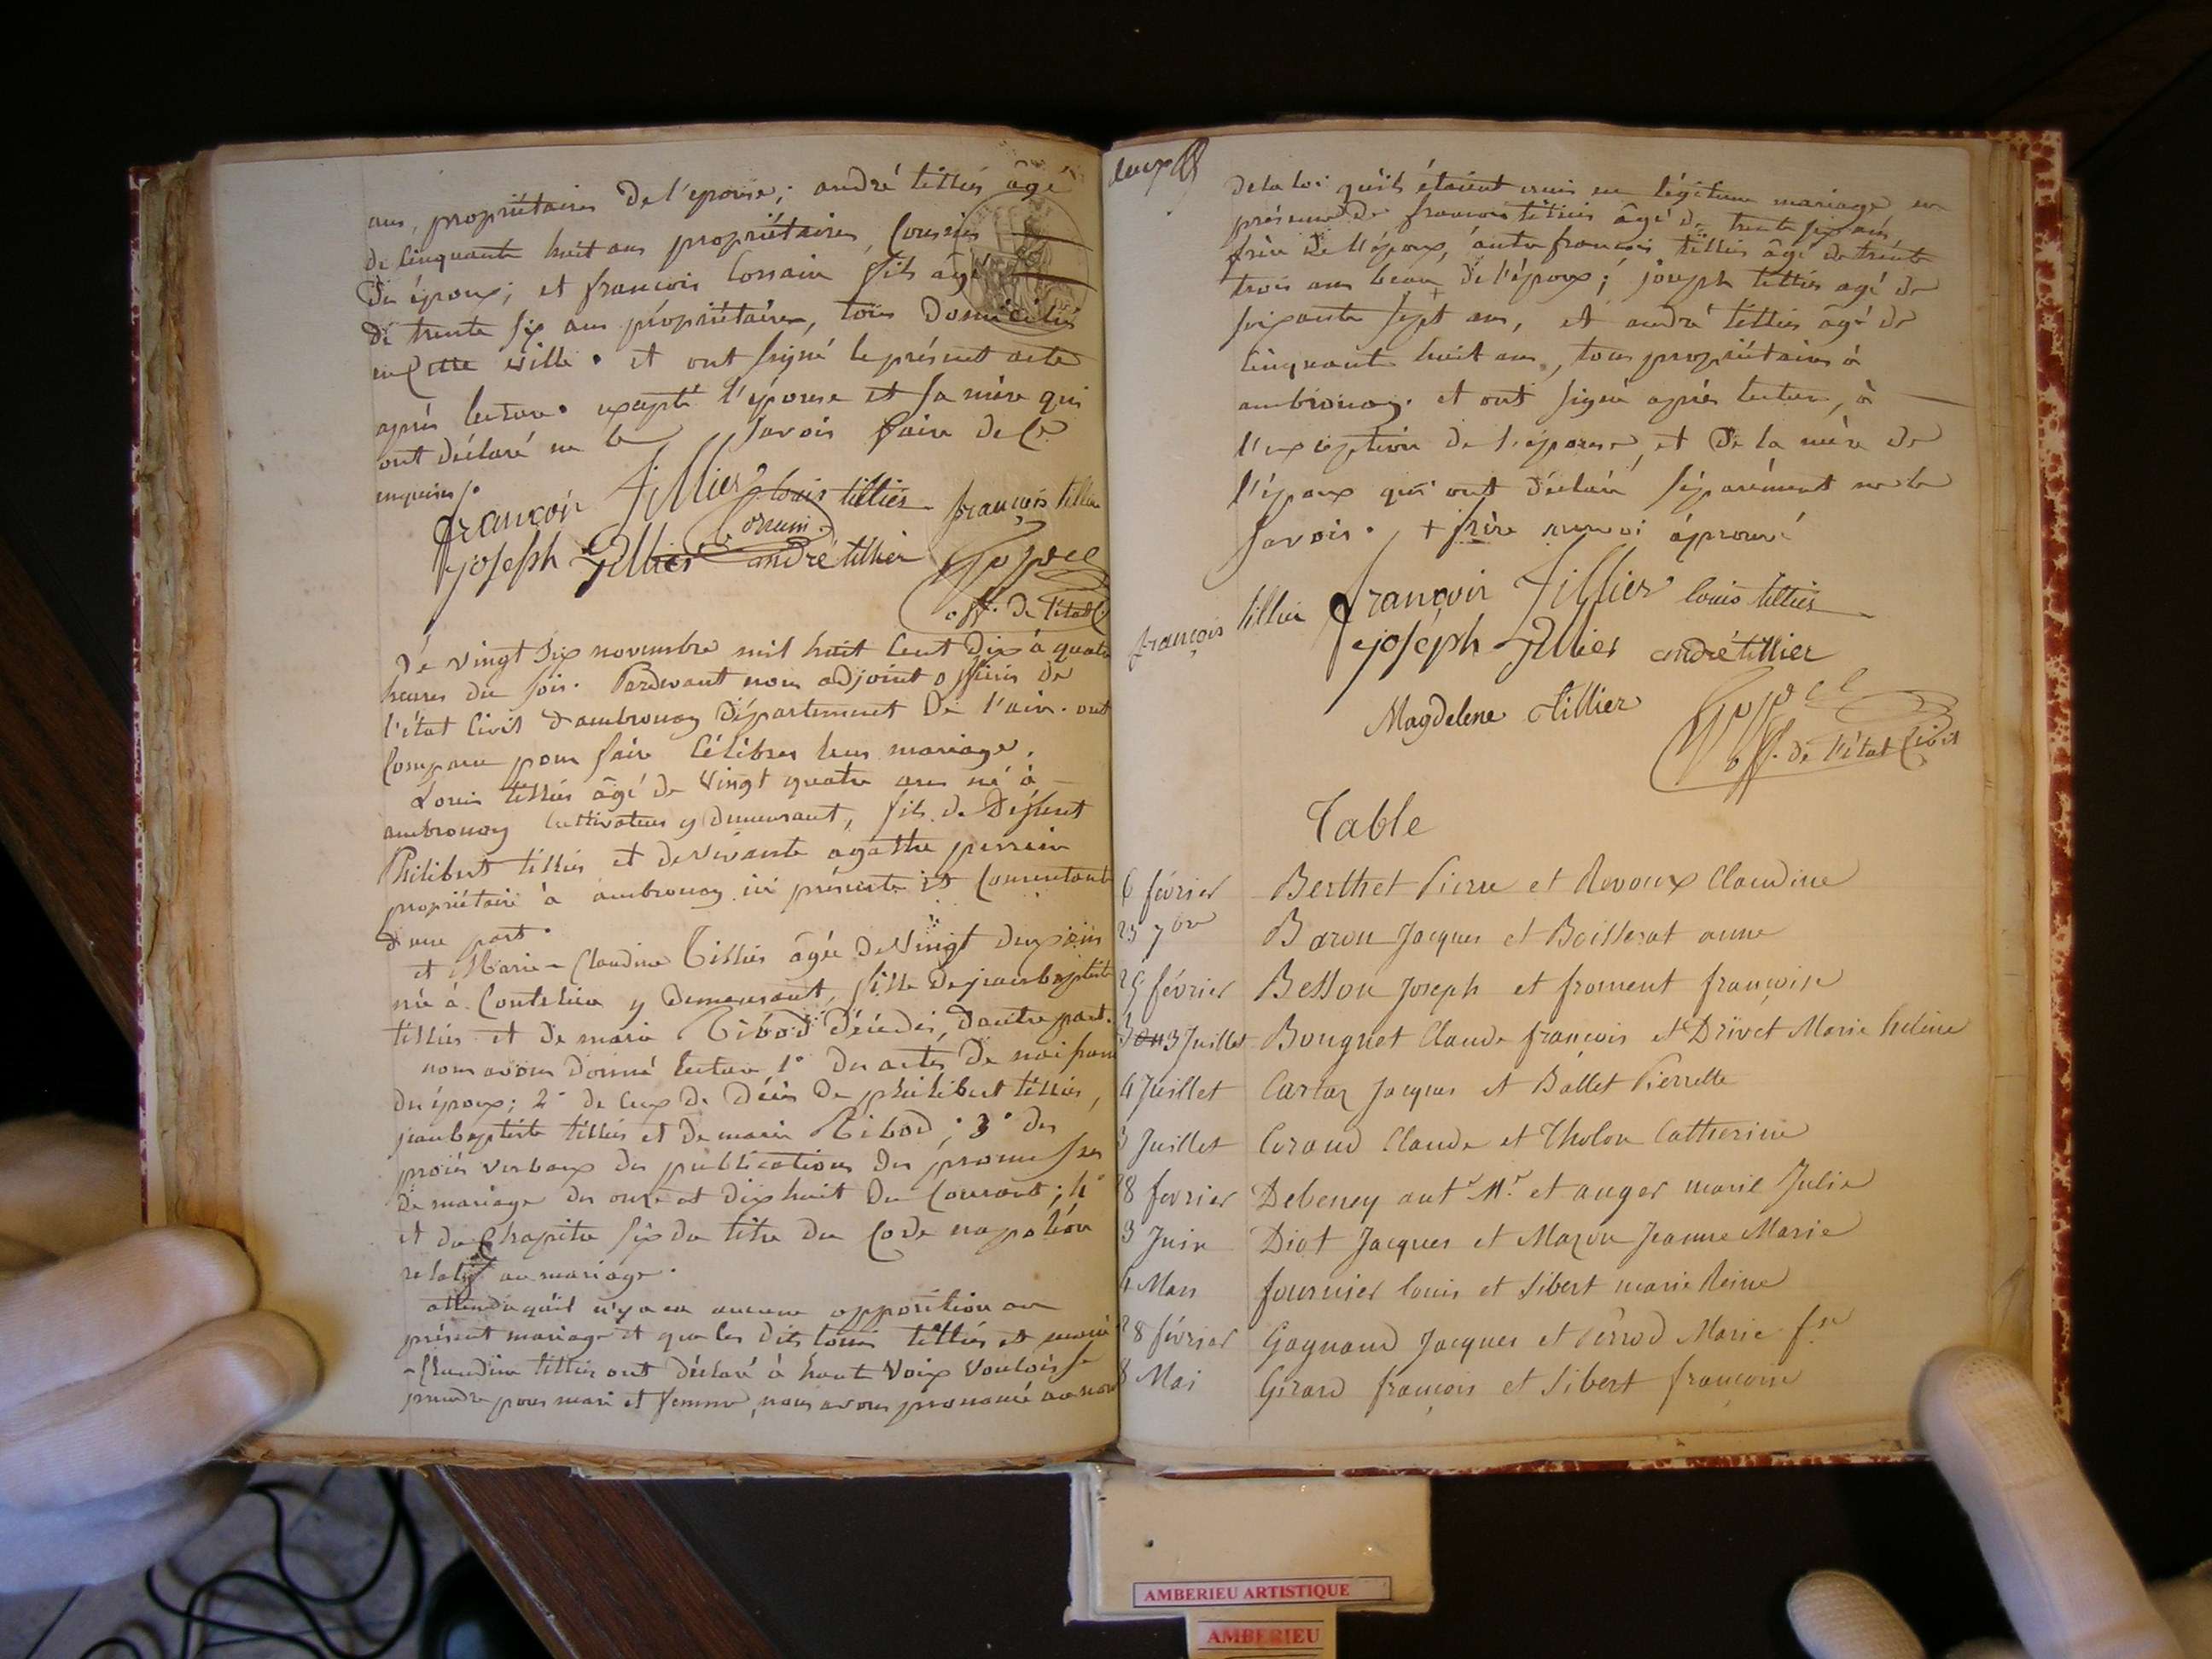 ans, propriétaires De l'epouse; andré tillier âgé
de Cinquante huit ans propriétaires, Cousins
Du époux; et francois Corrain fils âgé
de trente six ans propriétaires, tous Domiciliés
en Cette ville. et ont signé le présent acte
après lecture. excepté l'épouse et sa mère qui
ont déclaré ne le savoir faire de Ce
enquises /.
françois Tillier louis tillier françois tillier
joseph Tillier andré tillier
off. De l'état C
Le vingt six novembre mil huit Cent Dix à quatre
heures du soir. Pardevant nous adjoint officier de
l'état Civil d'ambronay Département De l'ain. ont
Comparu pour faire Célébrer leur mariage.
Louis tillier âgé de Vingt quatre ans né à
ambronay Cultivateur y Demeurant, fils de Deffunt
Philibert tillier et de vivante agathe perrein
propriétaire à ambronay ici présente et Consentante
d'une part.
et Marie-Claudine Tillier âgée De Vingt deux ans
née à Coutelieu y Demeurant, fille De jean baptiste
tillier et De marie Tibod décédés, d'autre part.
nous avons donné lecture 1° Des actes De naissance
des époux; 2° de Ceux de Décès De philibert tillier,
jean baptiste tillier et De marie Tibod; 3° des
procès verbaux des publications des promesses
De mariage des onze et dix huit Du Courant; 4°
et du Chapitre six du titre du Code napoléon
relatif au mariage.
attendu qu'il n'y a eu aucune opposition au
présent mariage et que les dits louis tillier et marie
-Claudine tillier ont déclaré à haute Voix Vouloir se
prendre pour mari et femme, nous avons prononcé au nom
De la loi qu'ils étaient unis en légitime mariage en
présence De françois tillier âgé De trente six ans
frère De l'époux, autre francois tillier âgé De trente
trois ans beau + De l'époux; joseph tillier agé de
soixante sept ans, et andré tillier âgé de
Cinquante huit ans, tous propriétaires à
ambronay. et ont signé après lecture, à
l'exception de l'épouse, et De la mère de
l'époux qui ont Déclaré séparément ne le
savoir. + frère renvoi approuvé
françois tillier françois Tillier louis tillier
joseph Tillier andré tillier
Magdelene Tillier
off. de l'état Civil
Table
6 février Berthet Pierre et Revoux Claudine
23 7bre Baron Jacques et Boisserat anne
25 février Besson Joseph et froment françoise
3 Juillet Bouguet Claude françois et Drivet Marie heleine
4 Juillet Carlaz Jacques et Ballet Pierrette
3 Juillet Ceraud Claude et Tholon Catherine
28 fevrier Debeney ant.e M.e et auger marie Julie
3 Juin Diot Jacques et Mazou Jeanne Marie
4 Mars fournier louis et Sibert marie Reine
28 février Gagnaud Jacques et Perrod Marie f.se
8 Mai Girard françois et Sibert françoise
AMBERIEU ARTISTIQUE
AMBERIEU